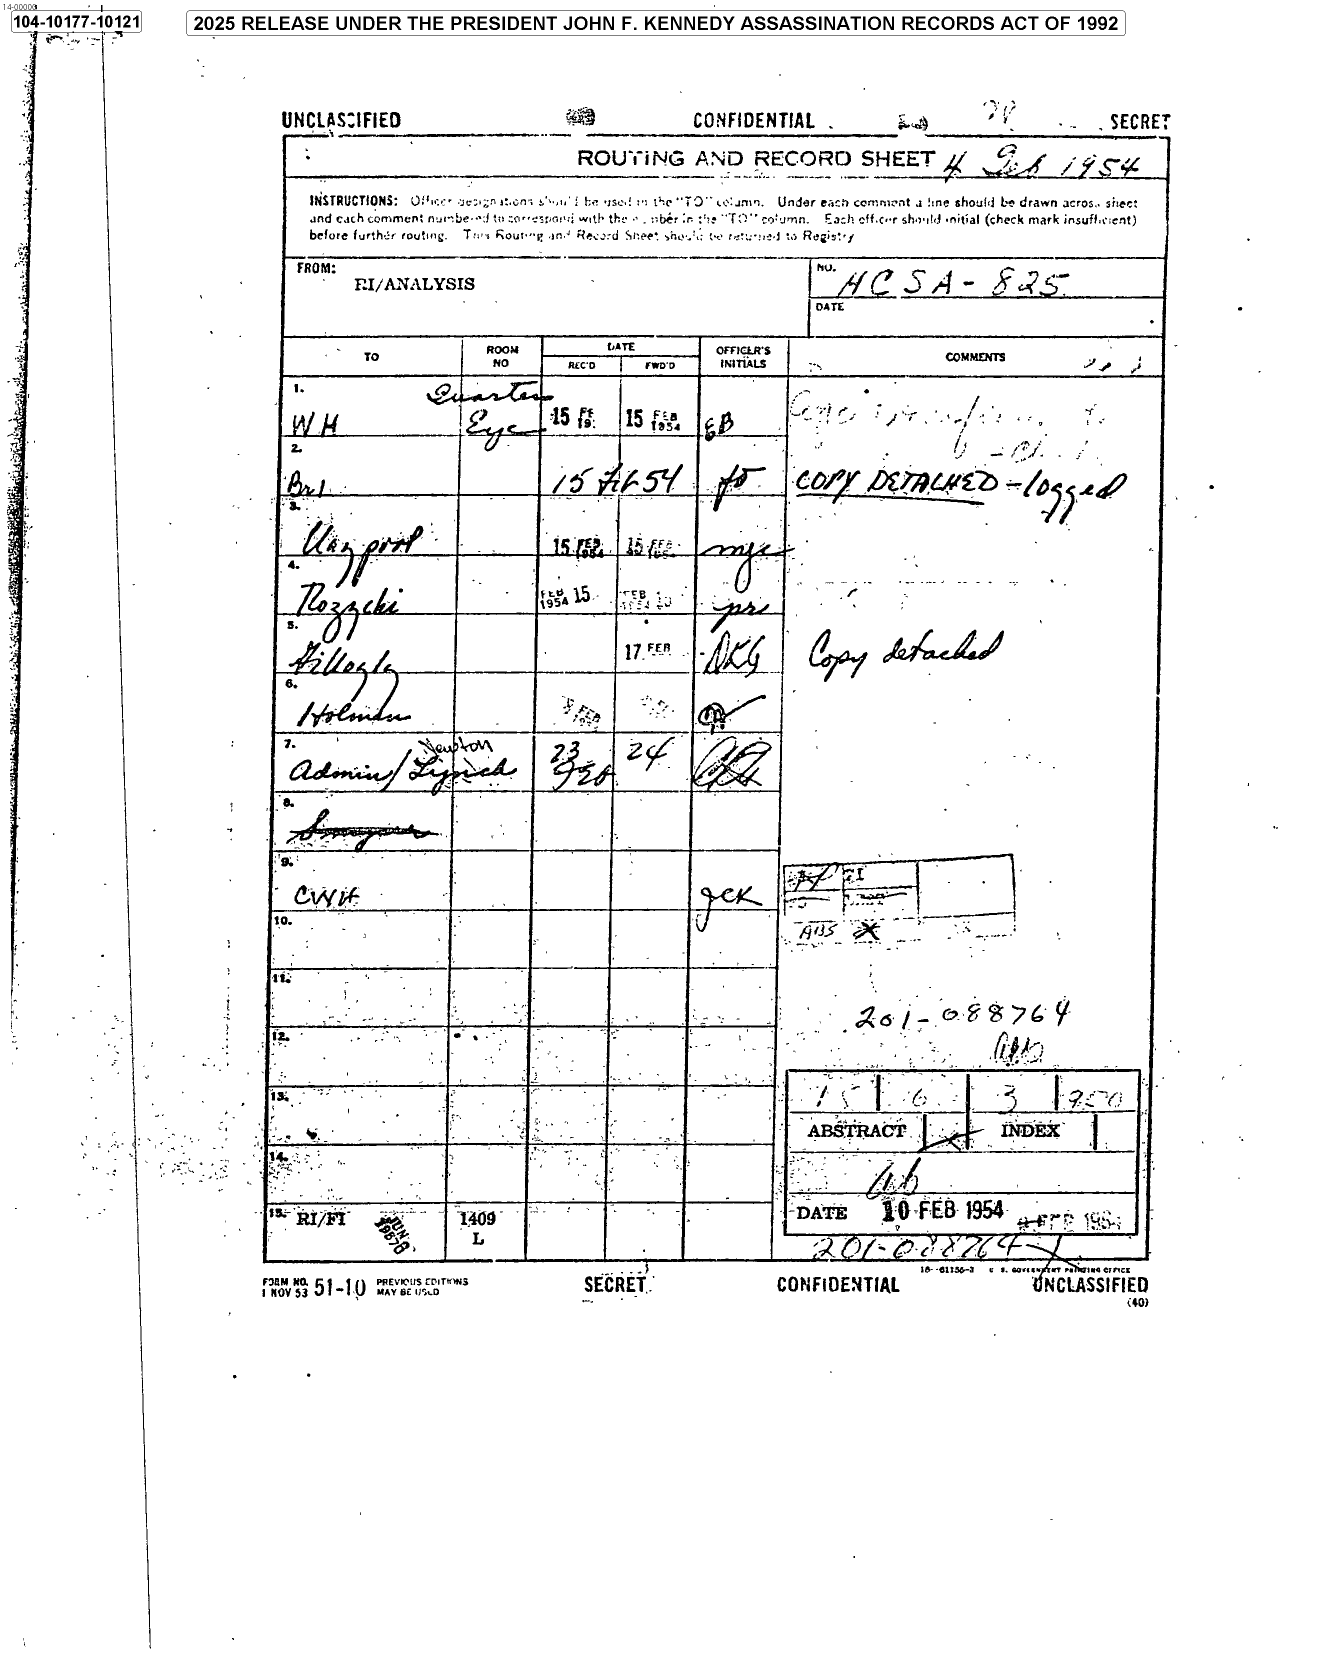 14-00000
104-10177-10121
2025 RELEASE UNDER THE PRESIDENT JOHN F. KENNEDY ASSASSINATION RECORDS ACT OF 1992
UNCLASSIFIED CONFIDENTIAL SECRET
ROUTING AND RECORD SHEET 4 Feb 1954
INSTRUCTIONS: Officer designations should be used in the "TO" column. Under each comment a line should be drawn across sheet
and each comment numbered to correspond with the number in the "TO" column. Each officer should initial (check mark insufficient)
before further routing. This Routing and Record Sheet should be returned to Registry
FROM:
RI/ANALYSIS
NO.
HCSA-825
DATE
TO
ROOM NO
DATE
REC'D
FWD'D
OFFICER'S INITIALS
COMMENTS
1.
WH Quarters Eye 15 FE 19 15 FEB 1954 EB
2.
Br1 15 Feb 54 COPY DETACHED - logged
3.
15 FEB 1954 15 FEB mgc
4.
FEB 15 1954 FEB
5.
17 FEB Copy detached
6.
Holman
7.
Admin/Lynch Newton 23 Feb 24
8.
9.
CWH JCK
ABS X
10.
11.
201-088764
12.
13.
15 6 3 950
ABSTRACT INDEX
14.
DATE 10 FEB 1954
15. RI/FI 1409 L
201-088764
FORM NO. 51-10 PREVIOUS EDITIONS MAY BE USED
1 NOV 53
16-61156-2 U. S. GOVERNMENT PRINTING OFFICE
SECRET CONFIDENTIAL UNCLASSIFIED
(40)